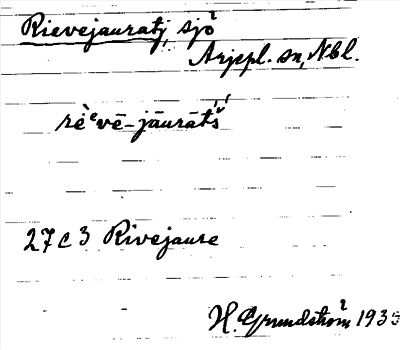 Rievejauratj, sjö
Arjepl. sn, Nbl.
rèᵉvē-jāurātś
27 C 3 Rivejaure
H. Grundström 193